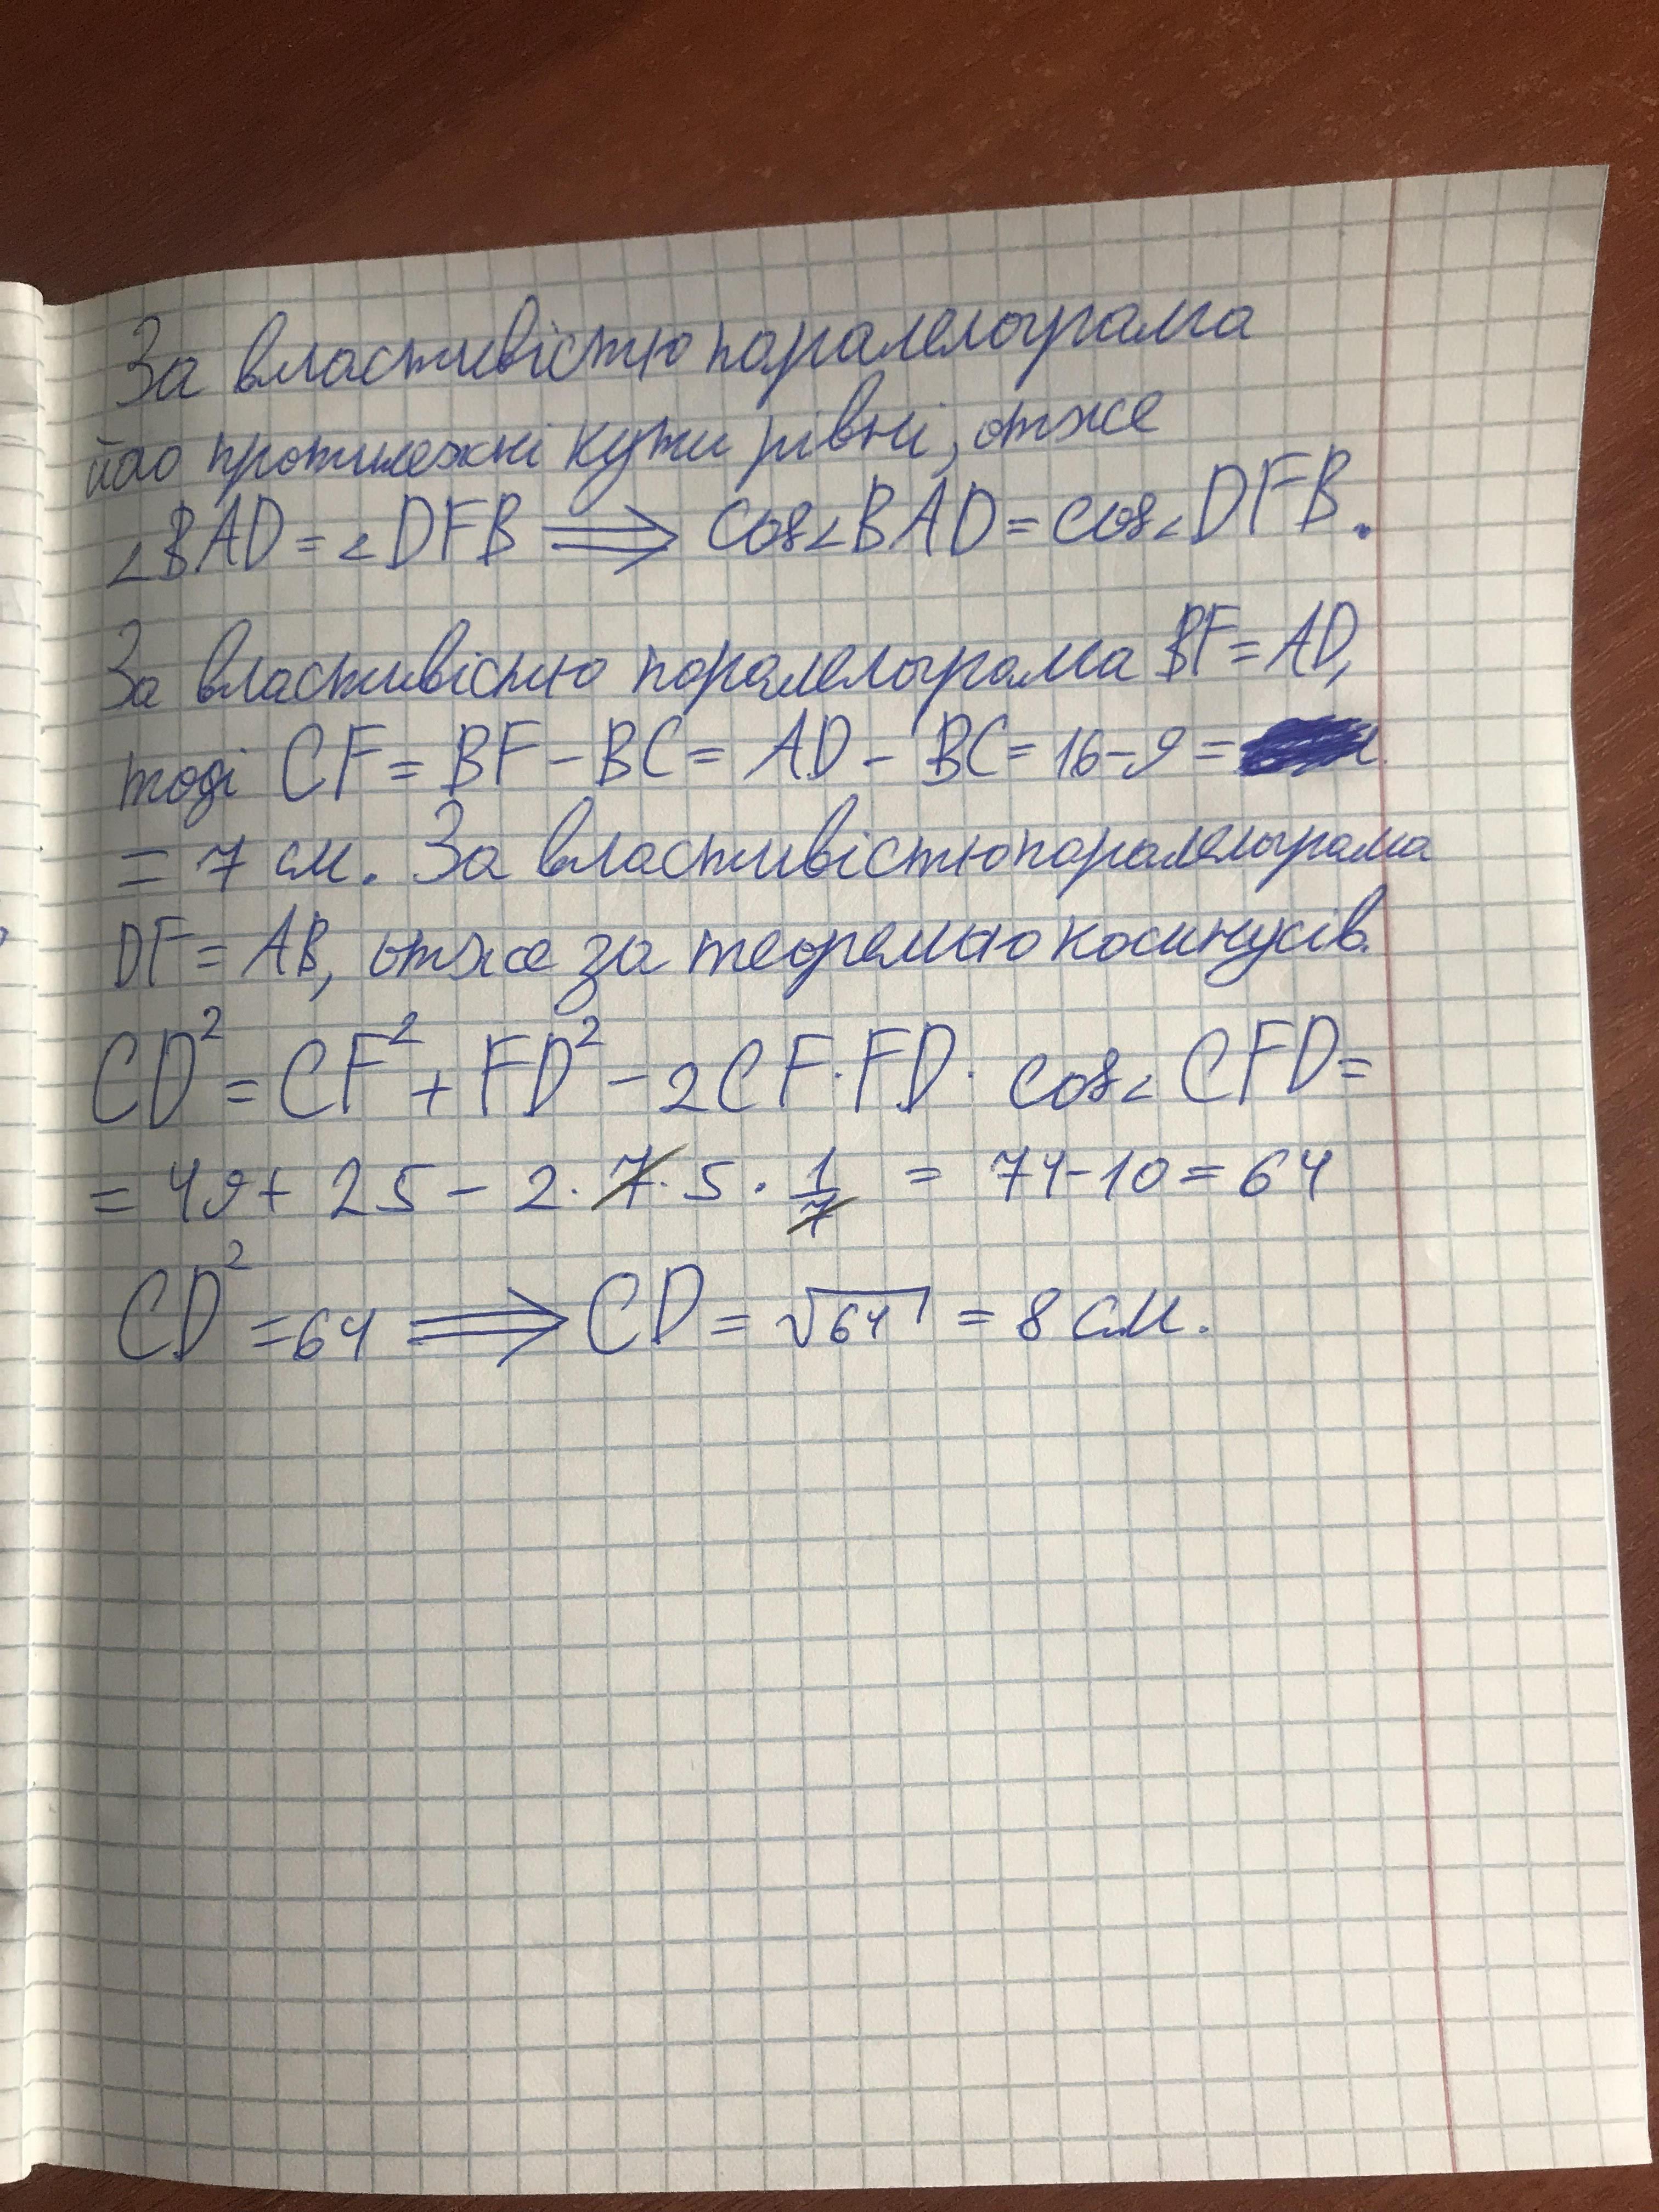 За властивістю паралелограма
його протилежні кути рівні, отже
∠BAD = ∠DFB ⟹ cos∠BAD = cos∠DFB.
За властивістю паралелограма BF = AD,
тоді CF = BF - BC = AD - BC = 16 - 9 =
= 7 см. За властивістю паралелограма
DF = AB, отже за теоремою косинусів.
CD² = CF² + FD² - 2CF · FD · cos∠CFD =
= 49 + 25 - 2 · 7 · 5 · 1/7 = 74 - 10 = 64
CD² = 64 ⟹ CD = √64 = 8 см.